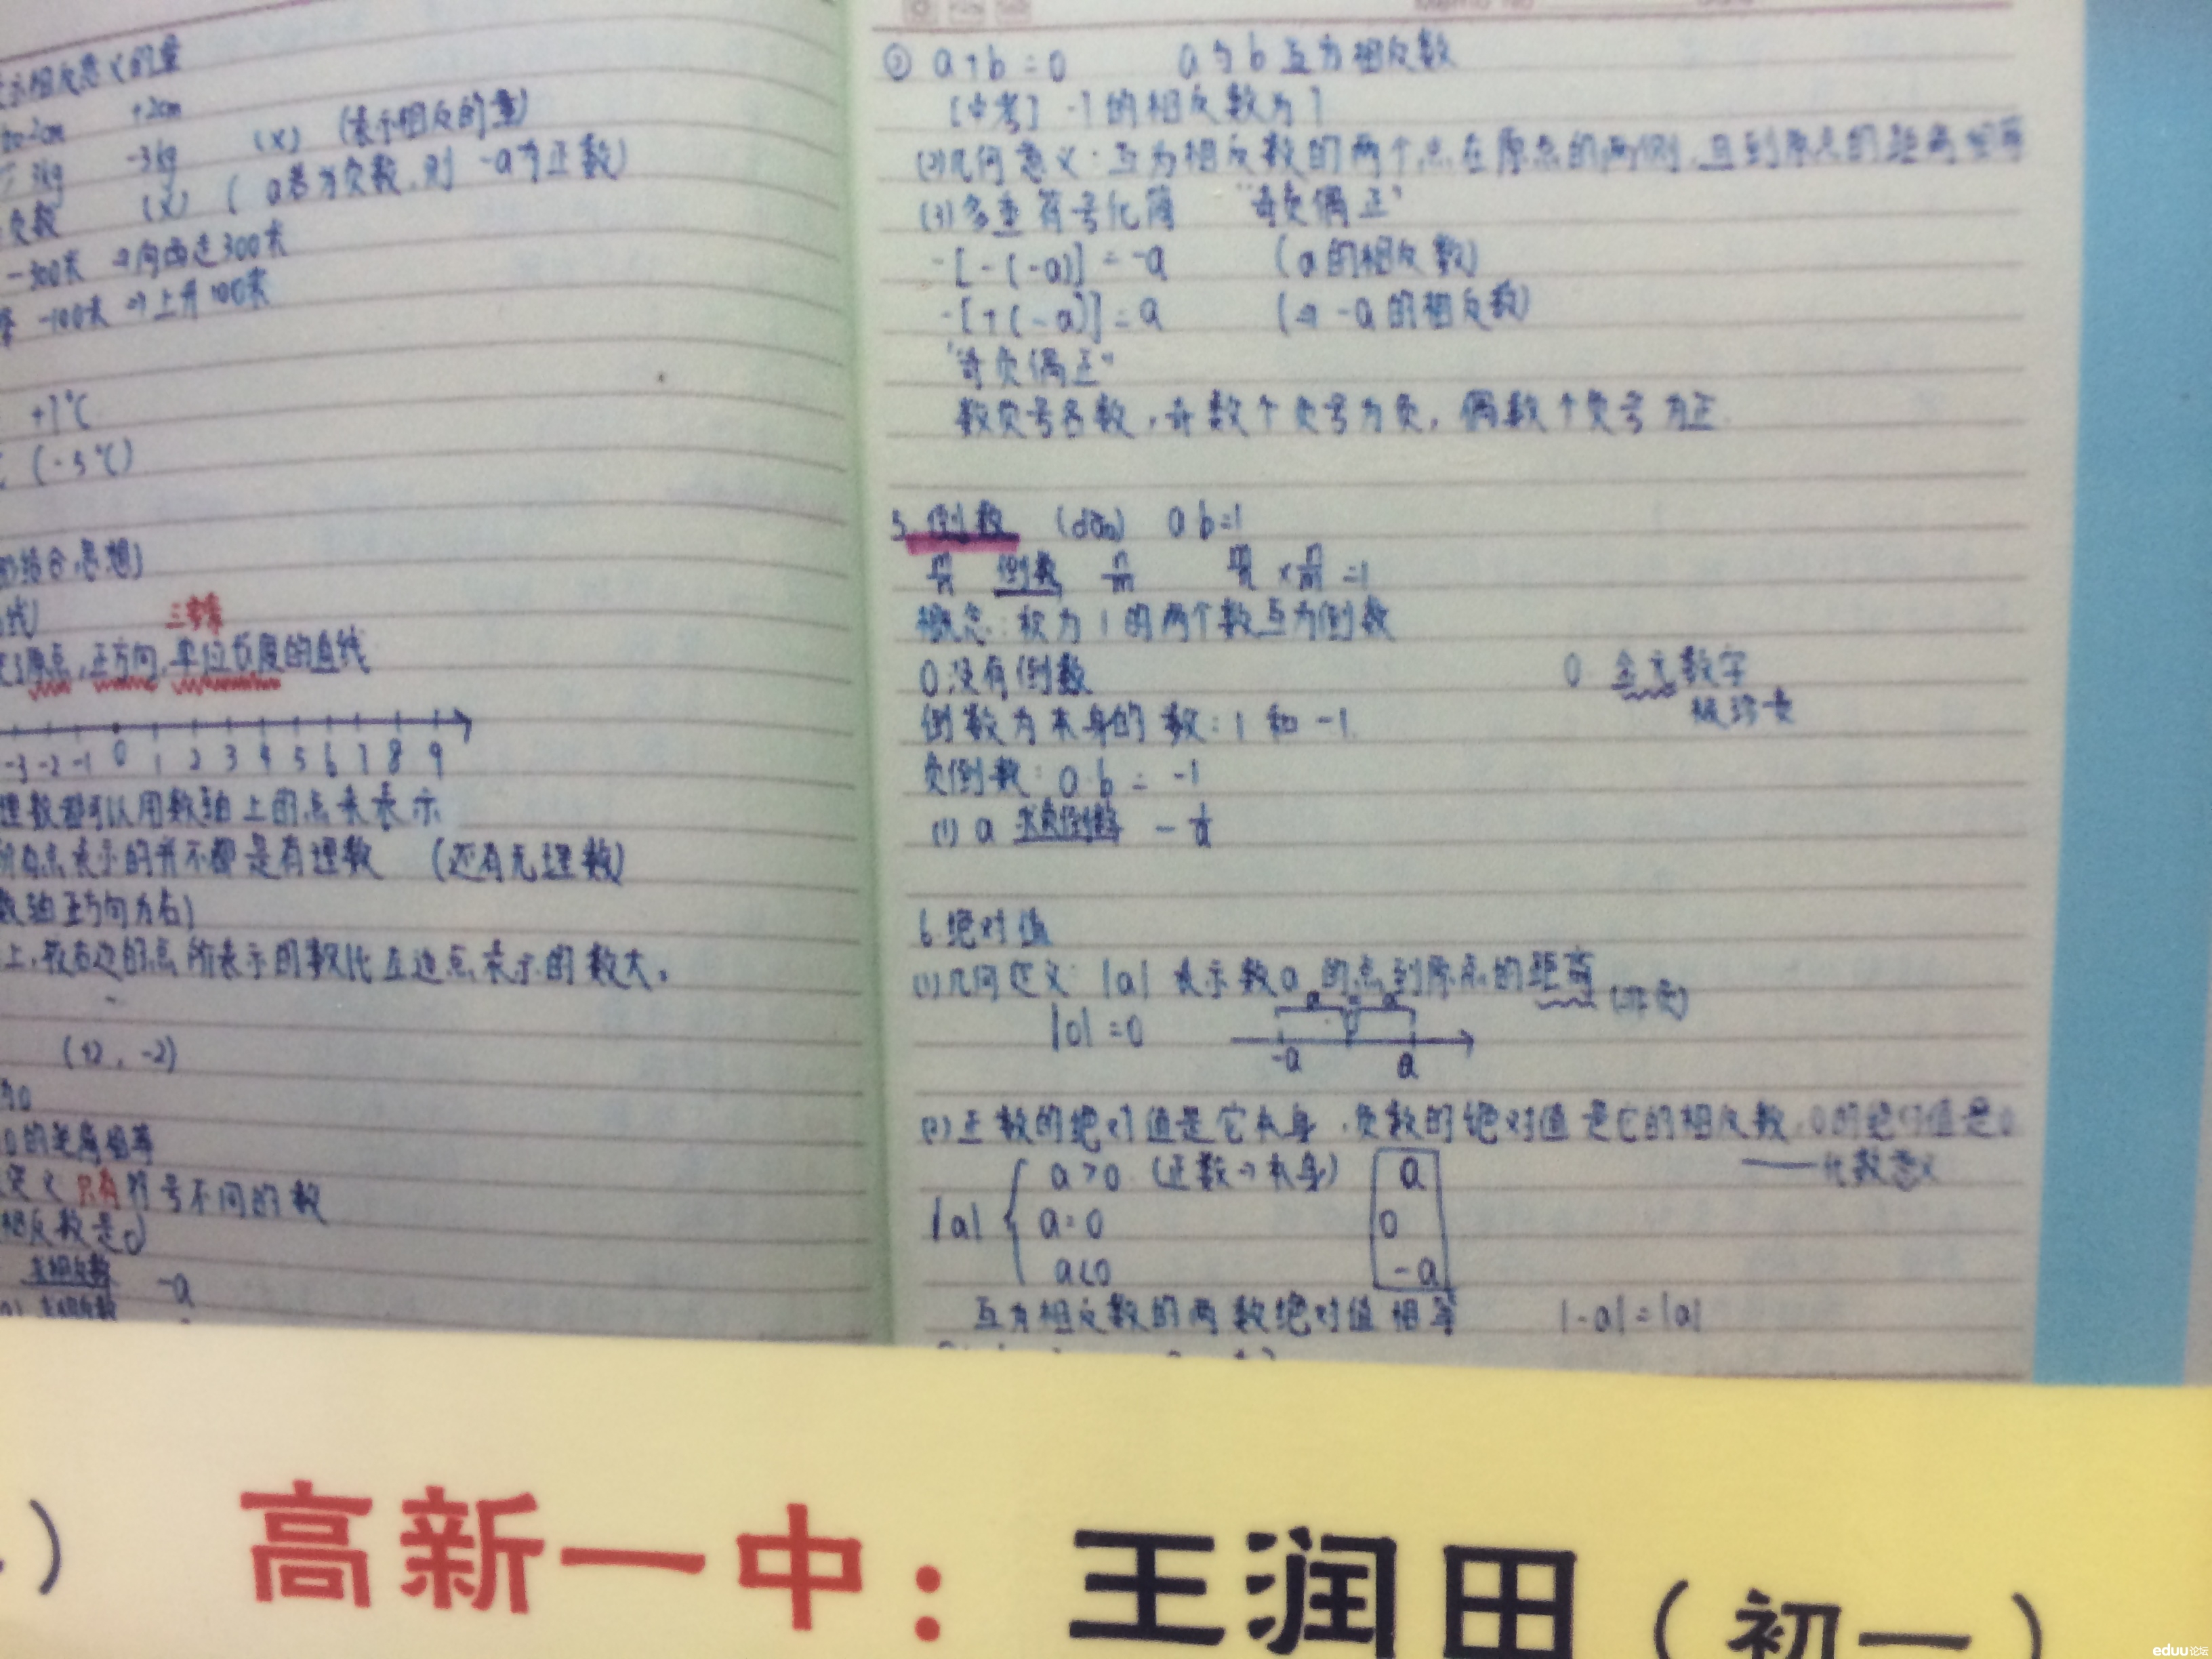 示相反意义的量
+2cm
3kg -3kg (×) (表示相反的量)
负数 (×) (a若为负数,则 -a为正数)
-300米 ⇒向西走300米
-100米 ⇒上升100米
+1℃
(-5℃)
结合思想)
线) 三要素
原点,正方向,单位长度的直线
-3 -2 -1 0 1 2 3 4 5 6 7 8 9
理数都可以用数轴上的点来表示
所有点表示的并不都是有理数 (还有无理数)
数轴正方向为右)
上,在右边的点所表示的数比左边点表示的数大。
(+2,-2)
为0
0的距离相等
定义 只有符号不同的数
相反数是0
求相反数 -a
② a+b=0 a与b互为相反数
[中考] -1的相反数为1
(2)几何意义:互为相反数的两个点在原点的两侧,且到原点的距离相等
(3)多重符号化简 “奇负偶正”
-[-(-a)]=-a (a的相反数)
-[+(-a)]=a (⇒ -a的相反数)
“奇负偶正”
数负号各数,奇数个负号为负,偶数个负号为正.
5.倒数 (dào) ab=1
m/n 倒数 n/m m/n×n/m=1
概念:积为1的两个数互为倒数
0没有倒数 0 全元数字
倒数为本身的数:1和-1.
负倒数:a·b=-1
(1) a 求负倒数 -1/a
6.绝对值
(1)几何定义:|a|表示数a的点到原点的距离(非负)
|0|=0 a a
-a a
(2)正数的绝对值是它本身,负数的绝对值是它的相反数,0的绝对值是0
——代数意义
|a| { a>0 (正数→本身) a
a=0 0
a<0 -a
互为相反数的两数绝对值相等 |-a|=|a|
) 高新一中:王润田(初一)
eduu论坛